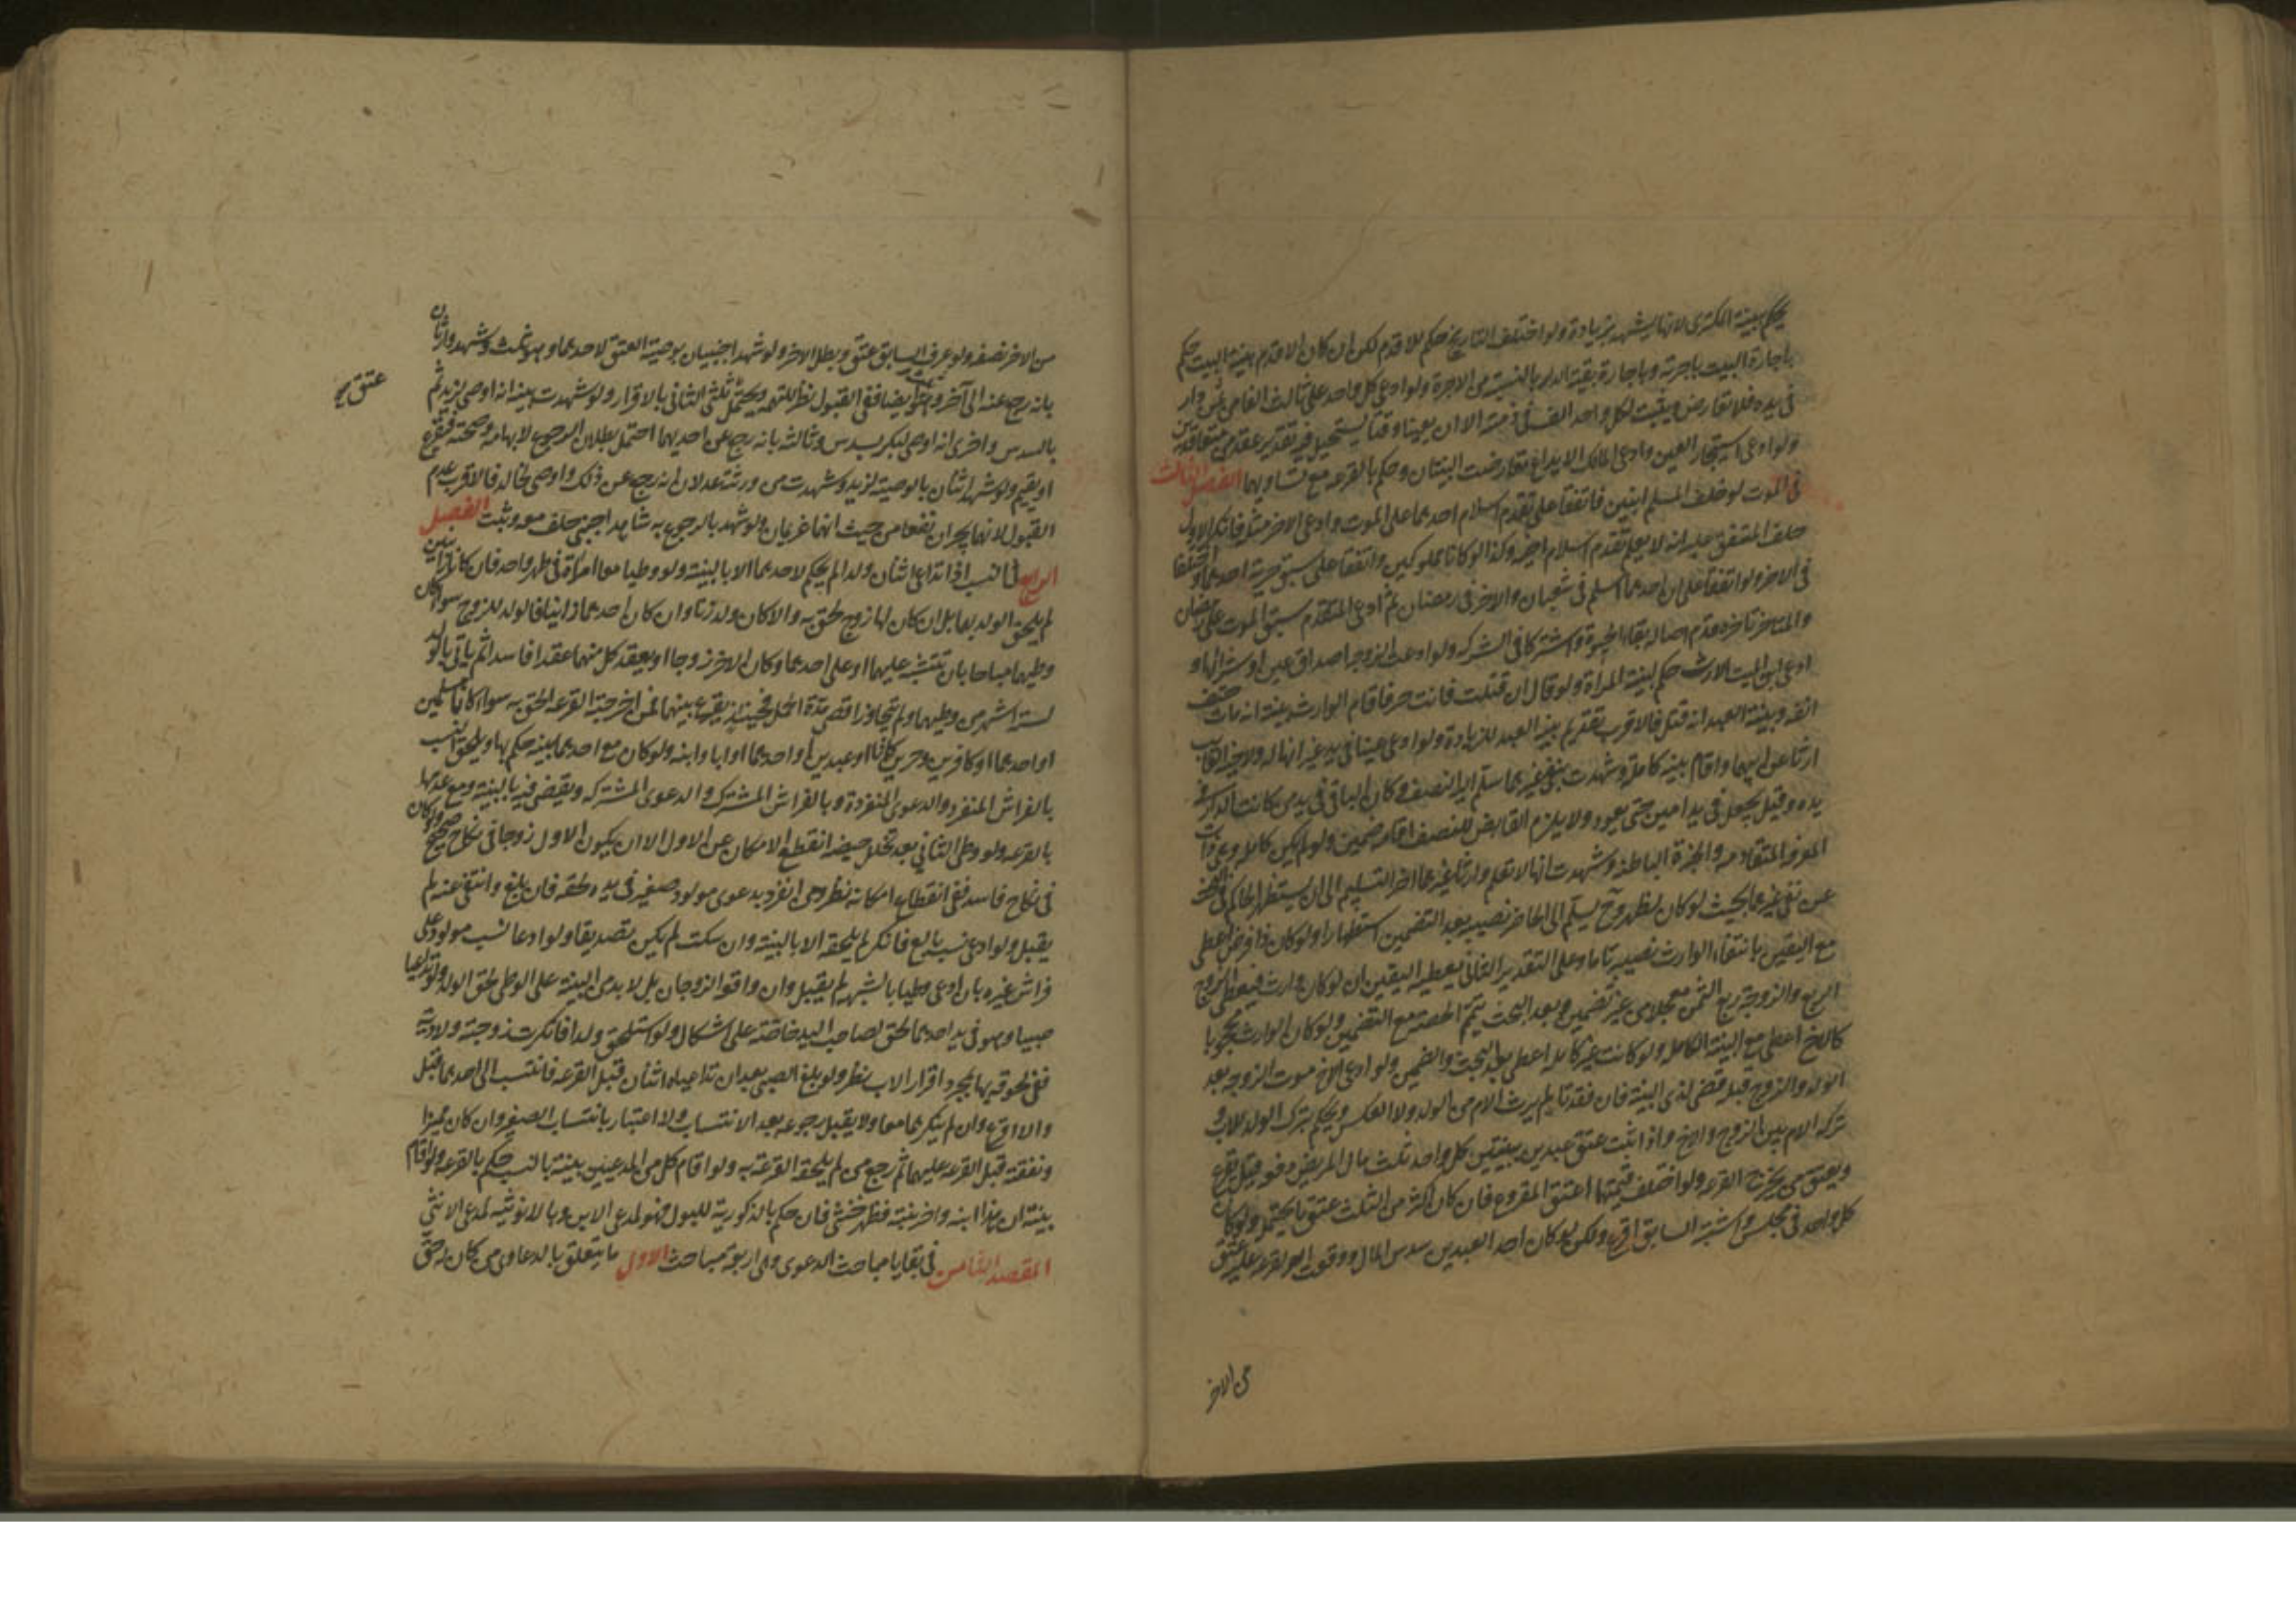 يحكم ببينة المكتري لانها يشهد بزيادة ولو اختلف التاريخ حكم للاقدم لكن ان كان الاقدم بينة البيت حكم
باجارة البيت باجرته وباجارة بقية الدار بالنسبة من الاجرة ولو ادعى كل واحد على ثالث الفا من ثمن دار
في يده فلا تعارض ويثبت لكل واحد الف في ذمته الا ان يعينا وقتا يستحيل فيه تقدير عقدين متعاقدين
ولو ادعى استيجار العين وادعى المالك الايداع تعارضت البينتان وحكم بالقرعة مع تساويهما الفصل الثالث
في الموت لو خلف المسلم ابنين فاتفقا على تقدم اسلام احدهما على الموت وادعى الاخر مثله فانكر الاول
حلف المتفق عليه انه لا يعلم تقدم اسلام اخيه وكذا لو كانا مملوكين واتفقا على سبق حرية احدهما واختلفا
في الاخر ولو اتفقا على ان احدهما اسلم في شعبان والاخر في رمضان ثم ادعى المتقدم سبق الموت على رمضان
والمتاخر تاخره قدم اصالة بقاء الحيوة واشتركا في التركة ولو ادعت الزوجة اصداق عين او شرائها و
ادعى ابن الميت الارث حكم لبينة المرأة ولو قال ان قتلت فانت حر فاقام الوارث بينة انه مات حتف
انفه وبينة العبد انه قتل فالاقرب تقديم بينة العبد للزيادة ولو ادعى عينا في يد غيره انها له ولاخيه الغايب
ارثا عن ابيهما واقام بينة كاملة وشهدت بنفي غيرهما سلم اليه النصف وكان الباقي في يد من كانت الدار في
يده وقيل يجعل في يد امين حتى يعود ولا يلزم القابض للنصف اقامة ضمين ولو لم يكن كاملة وهي ذات
المعرفة المتقادمة والخبرة الباطنة وشهدت انها لا تعلم وارثا غيرهما اخر التسليم الى ان يستظهر الحاكم في البحث
عن نفي غيرهما بحيث لو كان لظهر وح يسلم الى الحاضر نصيبه بعد التضمين استظهارا ولو كان ذا فرض اعطي
مع اليقين بانتفاء الوارث نصيبه تاما وعلى التقدير الثاني يعطيه اليقين ان لو كان وارث فيعطى الزوج
الربع والزوجة ربع الثمن معجلا من غير تضمين وبعد البحث يتم الحصة مع التضمين ولو كان الوارث محجوبا
كالاخ اعطي مع البينة الكاملة ولو كانت غير كاملة اعطي بعد البحث والضمين ولو ادعى الاخ موت الزوجة بعد
الولد والزوج قبله قضى لذي البينة فان فقدتا لم يرث الام من الولد ولا العكس ويحكم بتركة الولد للاب و
تركة الام بين الزوج والاخ واذا ثبت عتق عبدين ببينتين كل واحد ثلث مال المريض دفعة قيل يقرع
ويعتق من يخرجه القرعة ولو اختلف قيمتهما اعتق المقروع فان كان اكثر من الثلث عتق ما يحتمل ولو كان
كل واحد في مجلس واشتبه السابق اقرع ولكن لو كان احد العبدين سدس المال ووقعت القرعة عليه عتق
من الاخر
من الاخر نصفه ولو عرف السابق عتق وبطل الاخر ولو شهد اجنبيان بوصية العتق لاحدهما وهو ثلث وشهد وارثان
عتق
بانه رجع عنه الى آخر وهو ثلث ايضا ففي القبول نظر للتهمة ويحتمل ثلثي الثاني بالاقرار ولو شهدت بينة انه اوصى لزيد ثم
بالسدس واخرى انه اوصى لبكر بسدس وثالثة بانه رجع عن احديهما احتمل بطلان الرجوع لابهامه وصحته فيقرع
او يقسم ولو شهد اثنان بالوصية لزيد وشهدت من ورثته عدلان انه رجع عن ذلك واوصى لخالد فالاقرب عدم
القبول لانهما يجران نفعا من حيث انهما غريمان ولو شهد بالرجوع به شاهد اجنبي حلف معه وثبت الفصل
الرابع في النسب اذا تداعى اثنان ولدا لم يحكم لاحدهما الا بالبينة ولو وطيا معا امرأة في طهر واحد فان كانا زانيين
لم يلحق الولد بهما بل ان كان لها زوج لحق به والا كان ولد زنا وان كان احدهما زانيا فالولد للزوج سواء كان
وطيهما مباحا بان تشتبه عليهما او على احدهما وكان الاخر زوجا او يعقد كل منهما عقدا فاسدا ثم ياتي بالولد
لستة اشهر من وطيهما ولم يتجاوز اقصى مدة الحمل فحينئذ يقرع بينهما فمن اخرجته القرعة الحق به سواء كانا مسلمين
او احدهما او كافرين وحرين كانا او عبدين او احدهما او ابا وابنه ولو كان مع احدهما بينة حكم بها ويلحق النسب
بالفراش المنفرد والدعوى المنفردة وبالفراش المشترك والدعوى المشتركة ويقضى فيه بالبينة ومع عدمها
بالقرعة ولو وطى الثاني بعد تخلل حيضة انقطع الامكان عن الاول الا ان يكون الاول زوجا في نكاح صحيح ولو كان
في نكاح فاسد ففي انقطاع امكانه نظر ومن انفرد بدعوى مولود صغير في يده لحقه فان بلغ وانتفى عنه لم
يقبل ولو ادعى نسب بالغ فانكر لم يلحقه الا بالبينة وان سكت لم يكن تصديقا ولو ادعا نسب مولود على
فراش غيره بان ادعى وطيا بالشبهة لم يقبل وان وافقه الزوجان بل لا بد من البينة على الوطي لحق الولد ولو تداعيا
صبيا وهو في يد احدهما لحق لصاحب اليد خاصة على اشكال ولو استلحق ولدا فانكرت زوجته ولادته
ففي لحوقه بها بمجرد اقرار الاب نظر ولو بلغ الصبي بعد ان تداعياه اثنان قبل القرعة فانتسب الى احدهما قبل
والا اقرع وان لم ينكرهما معا ولا يقبل رجوعه بعد الانتساب ولا اعتبار بانتساب الصغير وان كان مميزا
ونفقته قبل القرعة عليهما ثم يرجع من لم يلحقه القرعة به ولو اقام كل من المدعيين بينة بالنسب حكم بالقرعة ولو اقام
بينة ان هذا ابنه واخر بنته فظهر خنثى فان حكم بالذكورية للبول فهو لمدعي الابن وبالانوثية لمدعي الانثى
المقصد الثامن في بقايا مباحث الدعوى وفيه اربعة مباحث الاول ما يتعلق بالدعاوى من كان له حق